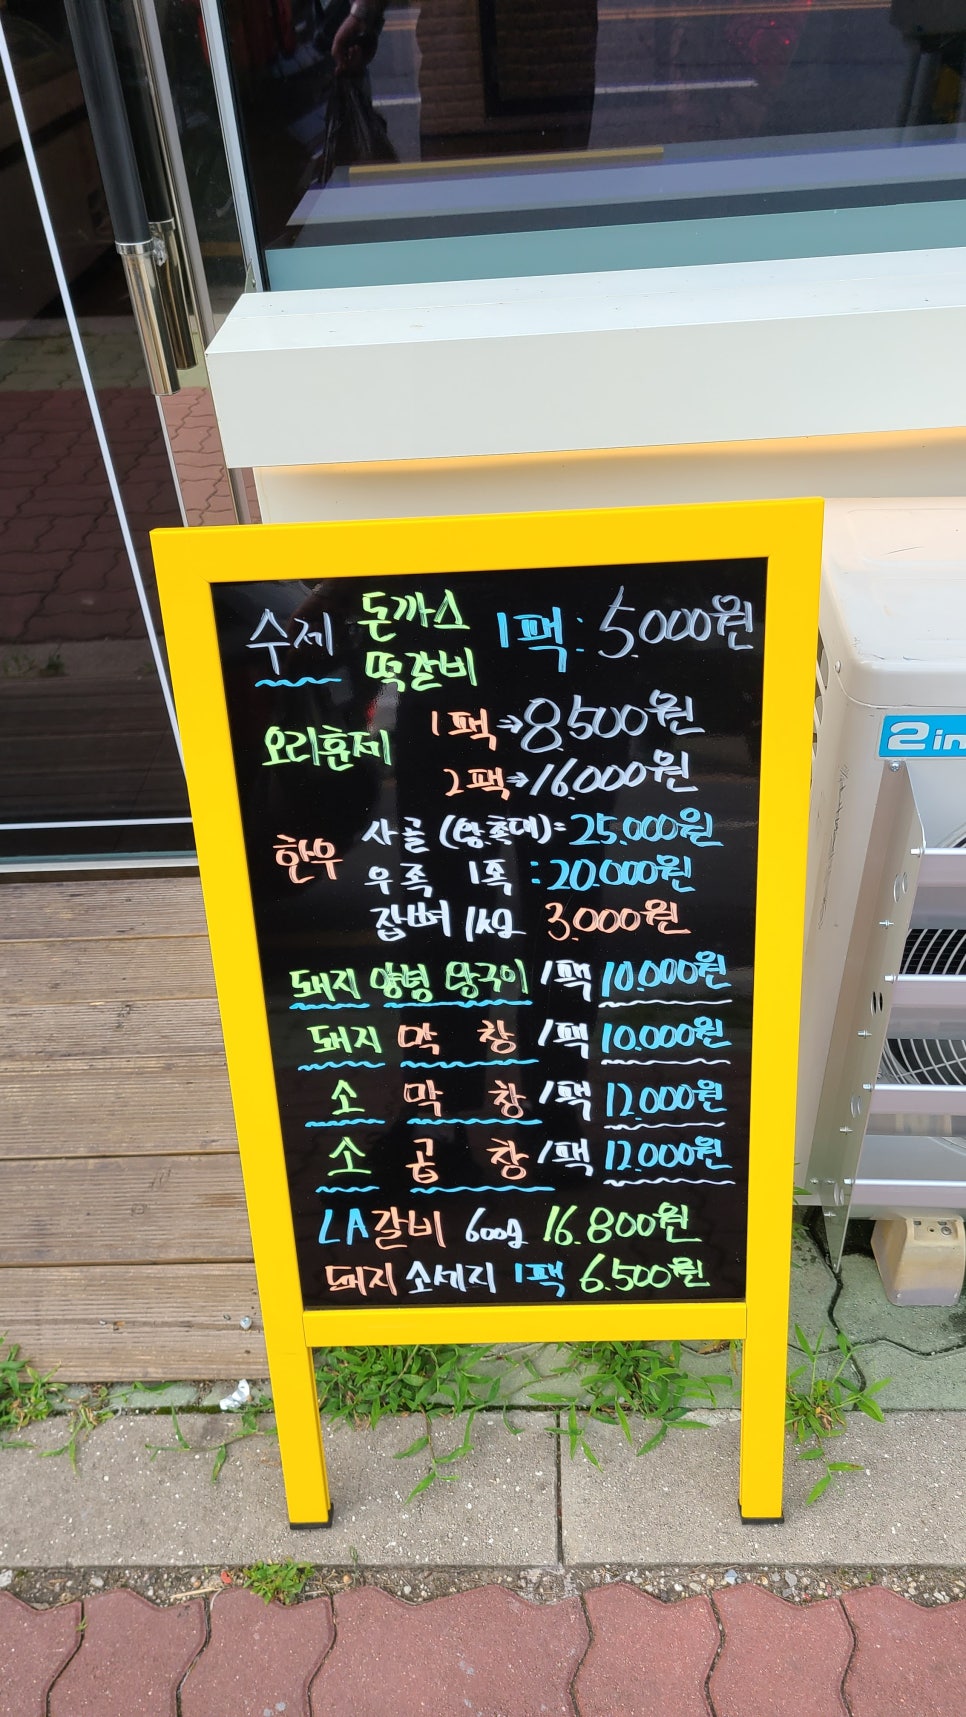 수제 돈까스 떡갈비 1팩: 5.000원
오리훈제 1팩→8.500원
2팩→16.000원
한우 사골 (왕.족대)= 25.000원
우족 1족 : 20.000원
잡뼈 1kg 3.000원
돼지 양념 왕구이 1팩 10.000원
돼지 막창 1팩 10.000원
소 막창 1팩 12.000원
소 곱창 1팩 12.000원
LA갈비 600g 16.800원
돼지 소세지 1팩 6.500원
2 in